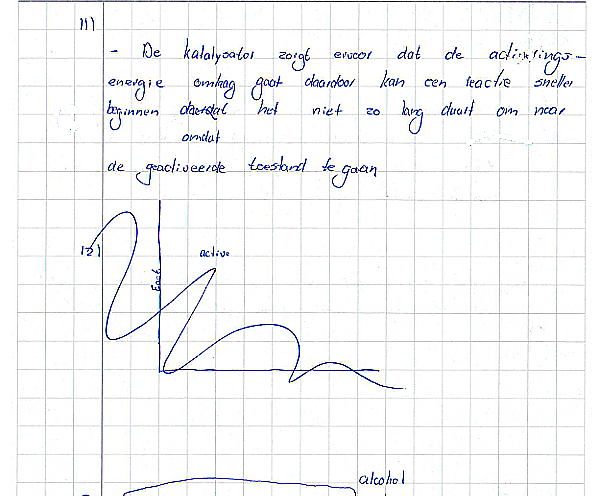 11)
- De katalysator zorgt ervoor dat de activerings-
energie omlaag gaat daardoor kan een reactie sneller
beginnen doordat het niet zo lang duurt om naar
omdat
de geactiveerde toestand te gaan
12)
active
Eact
alcohol